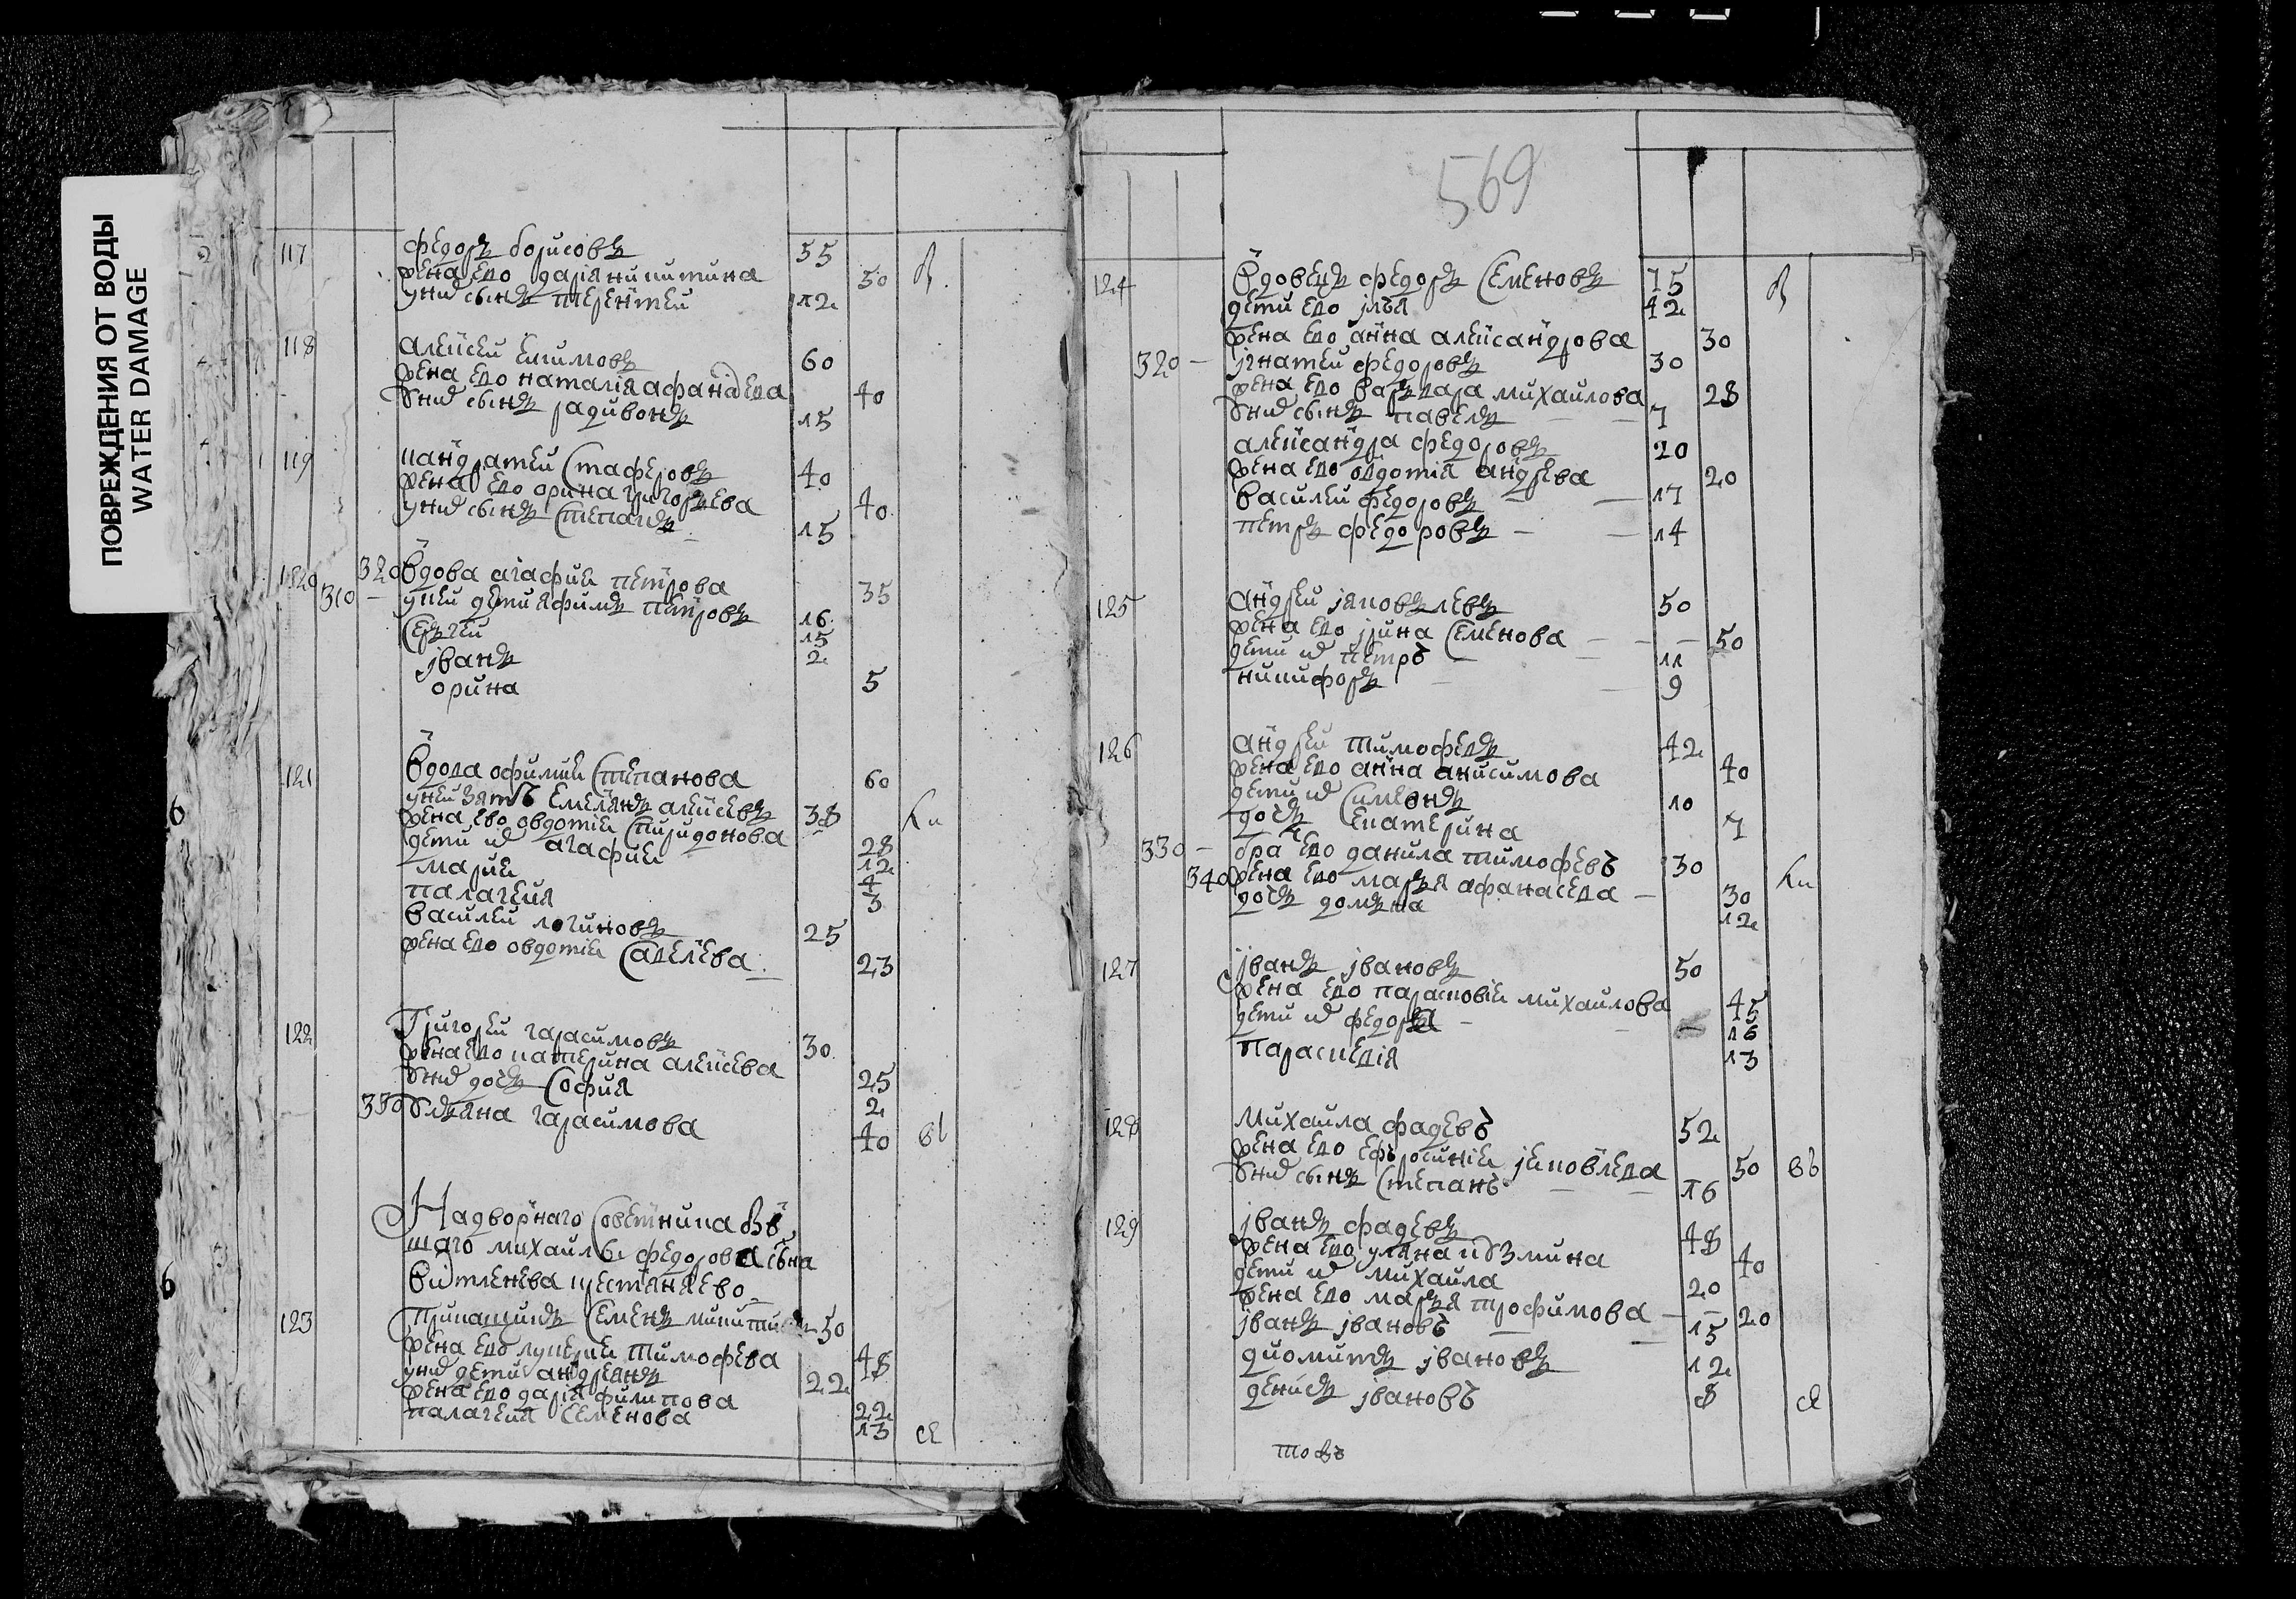 ПОВРЕЖДЕНИЯ ОТ ВОДЫ
WATER DAMAGE
117 федоръ борисовъ 55
жена ево дарья никитина 50
у нихъ сынъ терентеи 12
118 алексеи климовъ 60
жена ево наталія афанасева 40
у нихъ сынъ радивонъ 15
119 кандратеи стаферовъ 40
жена ево орина григорьева 40
у нихъ сынъ степанъ 15
120 310 320 вдова агафия петрова 35
у неи дети яфимъ петровъ 16
сергеи 15
іванъ 2
орина 5
121 вдова офимия степанова 60
у неи зять емельянъ алексевъ 38
жена ево овдотия спиридонова 28
дети их агафия 12
мария 4
палагея 3
василеи логиновъ 25
жена ево овдотия савельева 23
122 григореи гарасимовъ 30
жена ево катерина алексева 25
у них дочь софия 2
330 ульяна гарасимова 40
надворнаго советника
шаго михаилы федорова сына
крестьян ево
123 семенъ никитинъ 50
жена ево лукерия тимофева 48
у них дети андреянъ 22
жена ево дарья филипова 22
палагея семенова 13
569
124 вдовецъ федоръ семеновъ 75
дети ево ілья 42
жена ево анна александрова 30
320 ігнатеи федоровъ 30
жена ево варвара михаилова 28
у них сынъ павелъ 7
александра федоровъ 20
жена ево овдотия андрева 20
василеи федоровъ 17
петръ федоровъ 14
125 андреи яковлевъ 50
жена ево ірина семенова 50
дети их петръ 11
никифоръ 9
126 андреи тимофевъ 42
жена ево анна анисимова 40
дети их симеонъ 10
дочь екатерина 7
330 бра ево данила тимофевъ 30
340 жена ево марья афанасева 30
дочь домна 12
127 іванъ івановъ 50
жена ево парасковия михаилова 45
дети их федора 16
параскевія 13
128 михаила фадевъ 52
жена ево ефросиния яковлева 50
у них сынъ степанъ 16
129 іванъ фадевъ 48
жена ево уляна кузмина 40
дети их михаила 20
жена ево марья трофимова 20
іванъ івановъ 15
диомидъ івановъ 12
денисъ івановъ 8